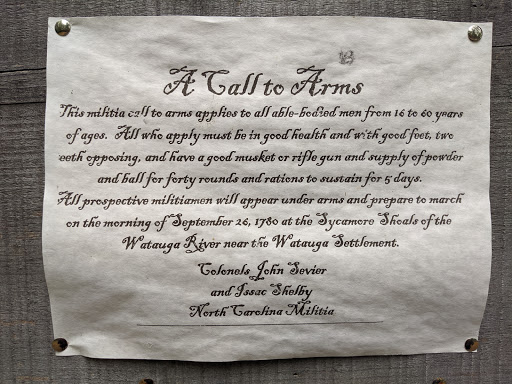 A Call to Arms
This militia call to arms applies to all able-bodied men from 16 to 60 years
of ages. All who apply must be in good health and with good feet, two
teeth opposing, and have a good musket or rifle gun and supply of powder
and ball for forty rounds and rations to sustain for 5 days.
All prospective militiamen will appear under arms and prepare to march
on the morning of September 26, 1780 at the Sycamore Shoals of the
Watauga River near the Watauga Settlement.
Colonels John Sevier
and Issac Shelby
North Carolina Militia